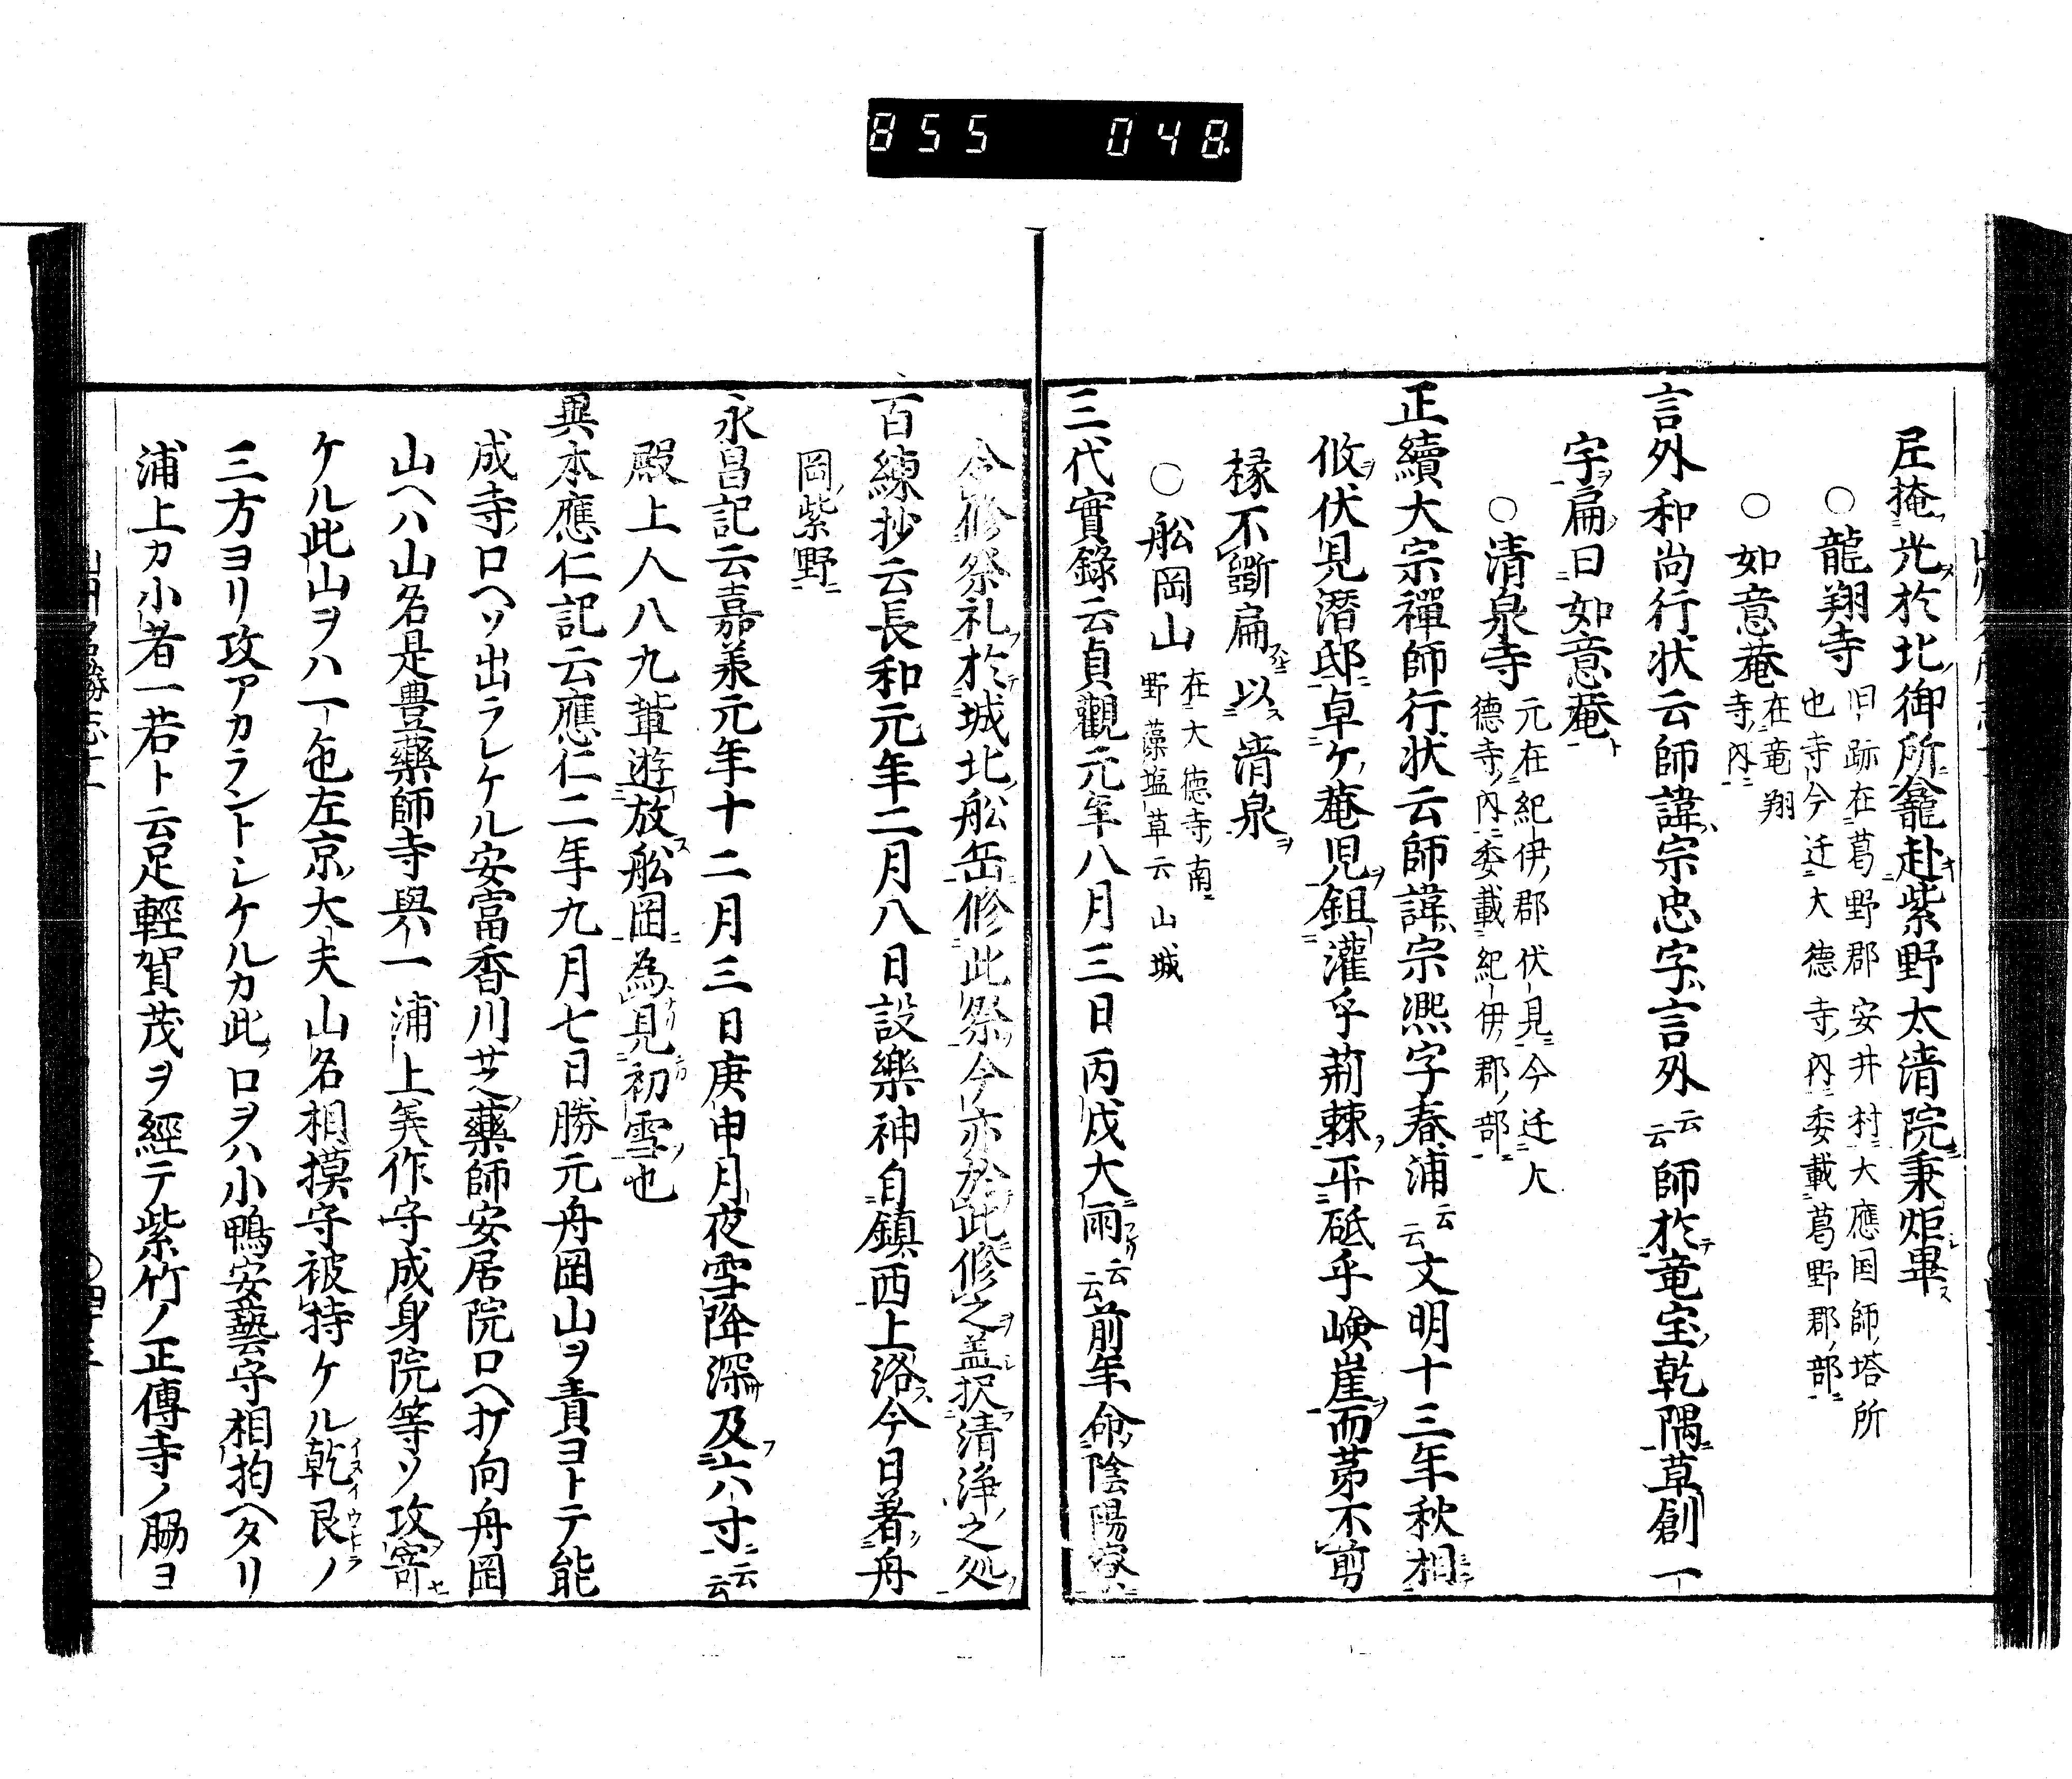 855 048
𡱈掩光於北御所龕赴紫野太清院秉炬畢
○龍翔寺
旧跡在葛野郡安井村大應国師塔所
也寺今迁大德寺内委載葛野郡部
○如意菴
在竜翔
寺内
言外和尚行状云師諱宗忠字言外云云師於竜宝乾隅草創一
宇扁曰如意菴
○清泉寺
元在紀伊郡伏見今迁大
德寺内委載紀伊郡部
正續大宗禪師行状云師諱宗凞字春浦云云文明十三年秋相
攸伏見潛邸卓ケ菴児鉏灌乎荊棘平砥乎嶮崖而茅不剪
椽不斵扁以清泉
○舩岡山
在大德寺南
野藻塩草云山城
三代實錄云貞觀元年八月三日丙戌大雨云云前年命陰陽寮
令修祭礼於城北舩岳修此祭今亦於此修之盖択清淨之処
百練抄云長和元年二月八日設樂神自鎮西上洛今日著舟
岡紫野
永昌記云嘉羕元年十二月三日庚申月夜雪降深及六八寸云云
殿上人八九輩遊放舩岡為見初雪也
異本應仁記云應仁二年九月七日勝元舟岡山ヲ責ヨトテ能
成寺口ヘソ出ラレケル安富香川芝藥師安居院口ヘ打向舟岡
山ヘハ山名是豊藥師寺與一浦上美作守成身院等ソ攻寄
ケル此山ヲハ一色左京大夫山名相摸守被持ケル乾艮ノ
三方ヨリ攻アカラントシケルカ此口ヲハ小鴨安藝守相拘ヘタリ
浦上カ小者一若ト云足輕賀茂ヲ經テ紫竹ノ正傳寺ノ脇ヨ